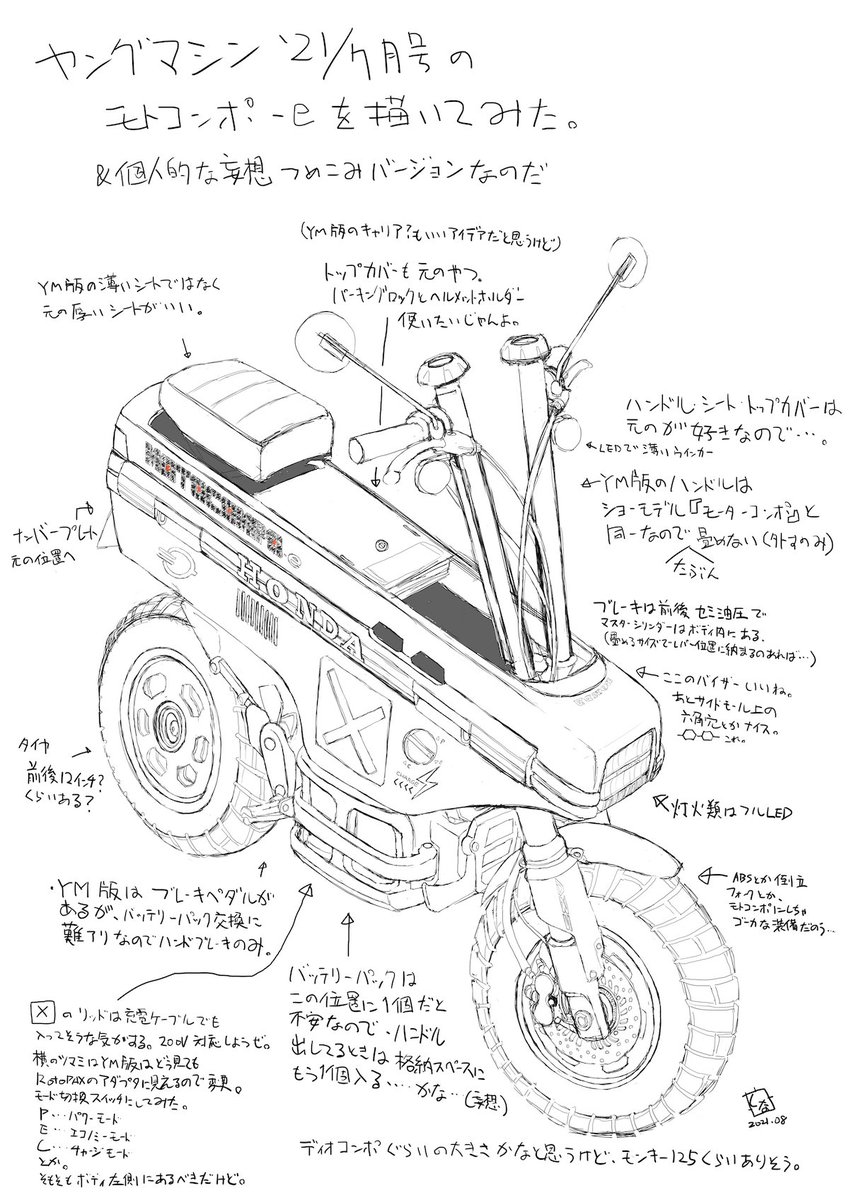 ヤングマシン '21/7月号の
モトコンポ-eを描いてみた。
&個人的な妄想つめこみバージョンなのだ
(YM版のキャリア?もいいアイデアだと思うけど)
YM版の薄いシートではなく
元の厚いシートがいい。
トップカバーも元のやつ。
パーキングロックとヘルメットホルダー
使いたいじゃんよ。
ハンドル・シート・トップカバーは
元のが好きなので…。
LEDで薄いウインカー
YM版のハンドルは
ショーモデル『モーターコンポ』と
同一なので畳めない(外すのみ)
たぶん
ナンバープレート
元の位置へ
ブレーキは前後セミ油圧で
マスターシリンダーはボディ内にある。
(畳めるサイズでレバー位置に納まるのあれば…)
HONDA
ここのバイザーいいね。
あとサイドモール上の
六角穴とかナイス。
これ。
タイヤ
前後12インチ?
くらいある?
CHARGE
灯火類はフルLED
ABSとか倒立
フォークとか、
モトコンポにしちゃ
ゴーカな装備だのう…
・YM版はブレーキペダルが
あるが、バッテリーパック交換に
難アリなのでハンドブレーキのみ。
バッテリーパックは
この位置に1個だと
不安なので、ハンドル
出してるときは格納スペースに
もう1個入る……かな…(妄想)
Xのリッドは充電ケーブルでも
入ってそうな気がする。200V対応しようぜ。
横のツマミはYM版はどう見ても
RotoPAXのアダプタに見えるので変更。
モード切換スイッチにしてみた。
P…パワーモード
E…エコノミーモード
C…チャージモード
とか。
そもそもボディ左側にあるべきだけど。
2021.08
ディオコンポぐらいの大きさかなと思うけど、モンキー125くらいありそう。